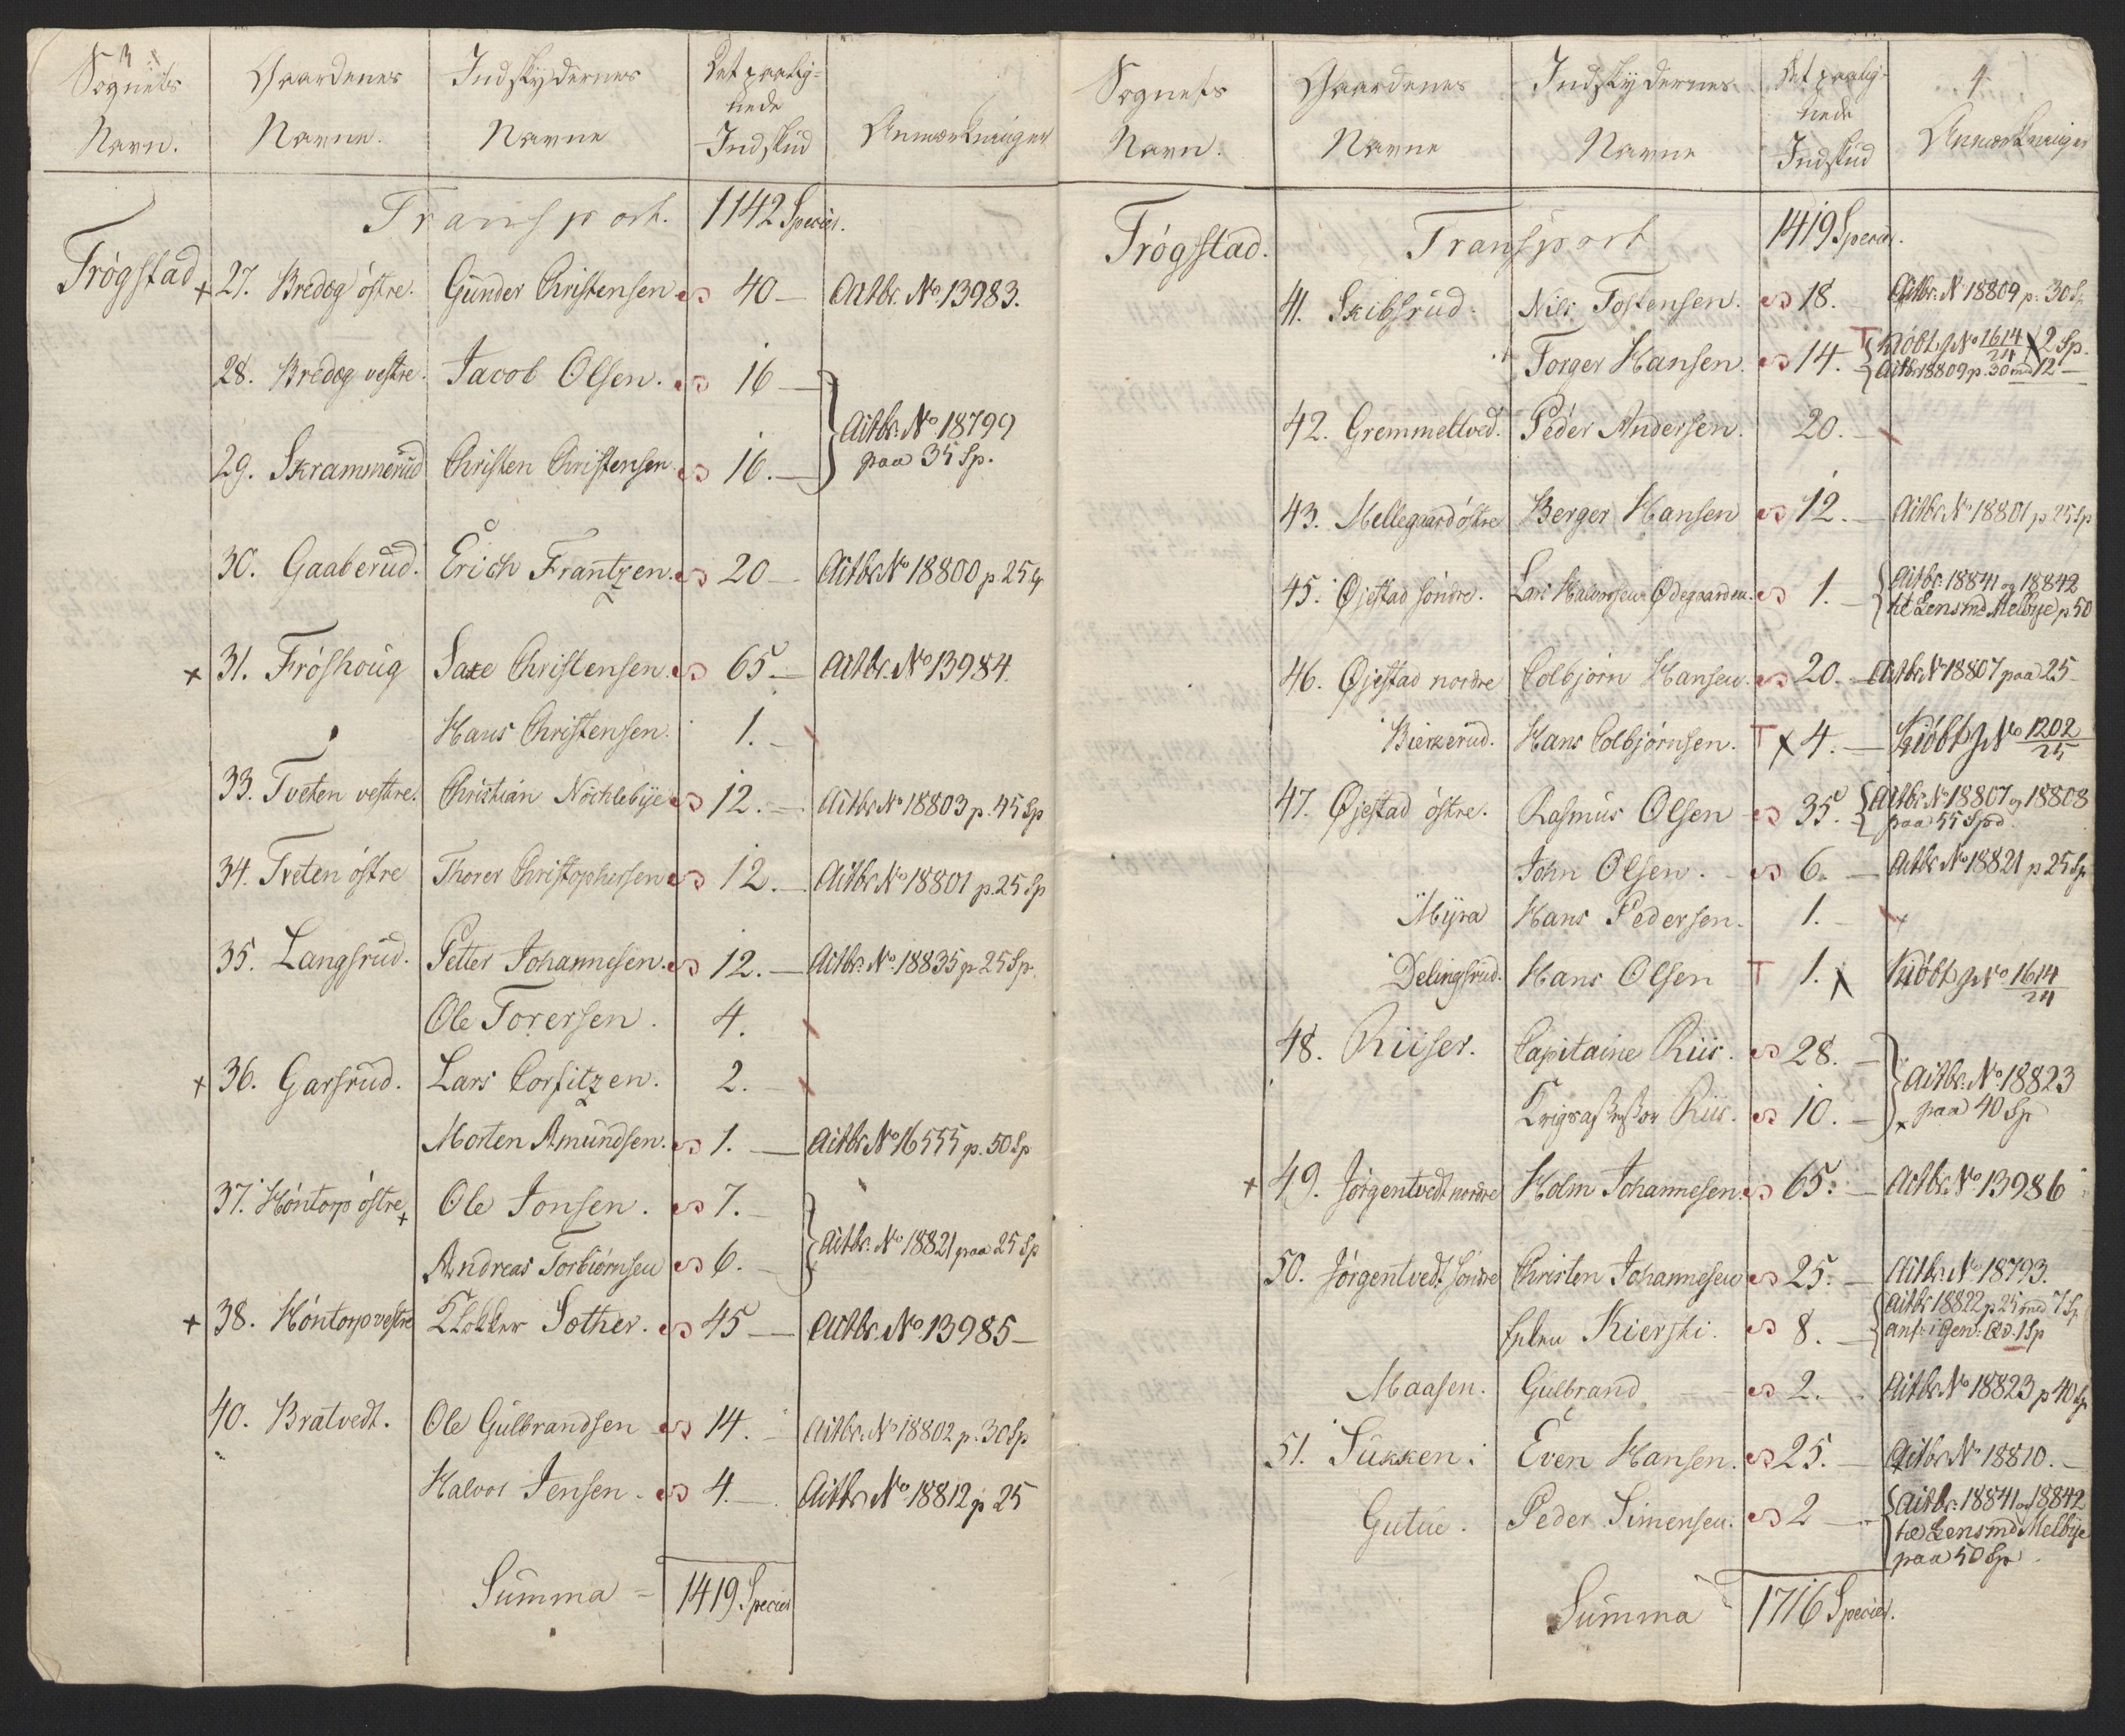 3
Sognets Navn. Gaardenes Navne. Indskydernes Navne Det paalignede Indskud Anmærkninger
Transport. 1142 Species.
Trögstad + 27. Bredeg östre. Gunder Christensen 40 — Actbr. No 13983.
28. Bredeg vestre. Jacob Olsen. 16 —
Actbr. No 18799
paa 35 Sp.
29. Skrammerud Christen Christensen 16. —
30. Gaaberud. Erich Frantzen. 20 — Actbr No 18800 p 25 Sp
+ 31. Fröshoug Saxe Christensen 65 — Actbr. No 13984.
Hans Christensen. 1. —
33. Tveten vestre. Christian Nöchlebye 12. — Actbr. No 18803 p. 45 Sp
34. Tveten östre Thorer Christophersen 12. — Actbr. No 18801 p. 25 Sp
35. Langsrud. Petter Johannesen. 12. — Actbr. No. 18835 p 25 Sp.
Ole Torersen. 4.
+ 36. Garsrud. Lars Corfitzen. 2. —
Morten Amundsen. 1. — Actbr No 16555 p. 50 Sp
37. Höntorp östre + Ole Jonsen. 7. —
Actbr. No 18821 paa 25 Sp
Andreas Torbiörnsen 6. —
+ 38. Höntorp vestre Klokker Sother. 45 — Actbr. No. 13985 —
40. Bratvedt. Ole Gulbrandsen 14. — Actbr. No 18802 p. 30 Sp
" Halvor Jensen. 4. — Actbr No 18812 p 25
Summa = 1419 Species
4
Sognets Navn. Gaardenes Navne Indskydernes Navne Det paalignede Indskud Anmærkninger
Trögstad. Transport 1419 Species.
41. Skibsrud. Nils Tostensen. 18. Actbr. No 18809 p. 30 Sp
Torger Hansen. 14. T Kiöbt J No 1614/24 2 Sp.
Actbr 18809 p. 30 md 12 —
42. Gremmeltved. Peder Andersen. 20. —
43. Mellegaard östre Berger Hansen 12. — Actbr. No 18801 p 25 Sp
45. Øjestad söndre. Lars Halvorsen Ødegaarden. 1. — Actbr. 18841 og 18842
til Lensmd Melbye p 50
46. Øjestad nordre Colbjörn Hansen. 20. — Actbr. No 18807 paa 25 —
Bierkerud. Hans Colbjörnsen. T x 4. — Kiöbt J No 1202/25
47. Øjestad östre. Rasmus Olsen 35. — Actbr. No 18807 og 18808
paa 55 Spd.
John Olsen. 6. — Actbr. No 18821 p 25 Sp
Myra Hans Pedersen. 1. —
Delingsrud. Hans Olsen T 1. x Kiöbt J No 1614/24
48. Riiser. Capitaine Riis. 28. —
Actbr. No. 18823
paa 40 Sp
Riis. 10. —
+ 49. Jörgentvedt nordre Holm Johannesen. 65. — Actbr. No 13986
50. Jörgentvedt söndre Christen Johannesen 25. — Actbr. No 18793.
Kierski. 8. — Actbr 18822 p 25 med 7 Sp
anf: i Gen: Qd. 1 Sp
Maasen. Gulbrand 2. — Actbr No 18823 p 40 Sp
51. Sukken: Even Hansen. 25. — Actbr No 18810. —
Gutue. Peder Simensen. 2 — Actbr. 18841 og 18842
til Lensmd Melbye
paa 50 Sp.
Summa 1716 Species.